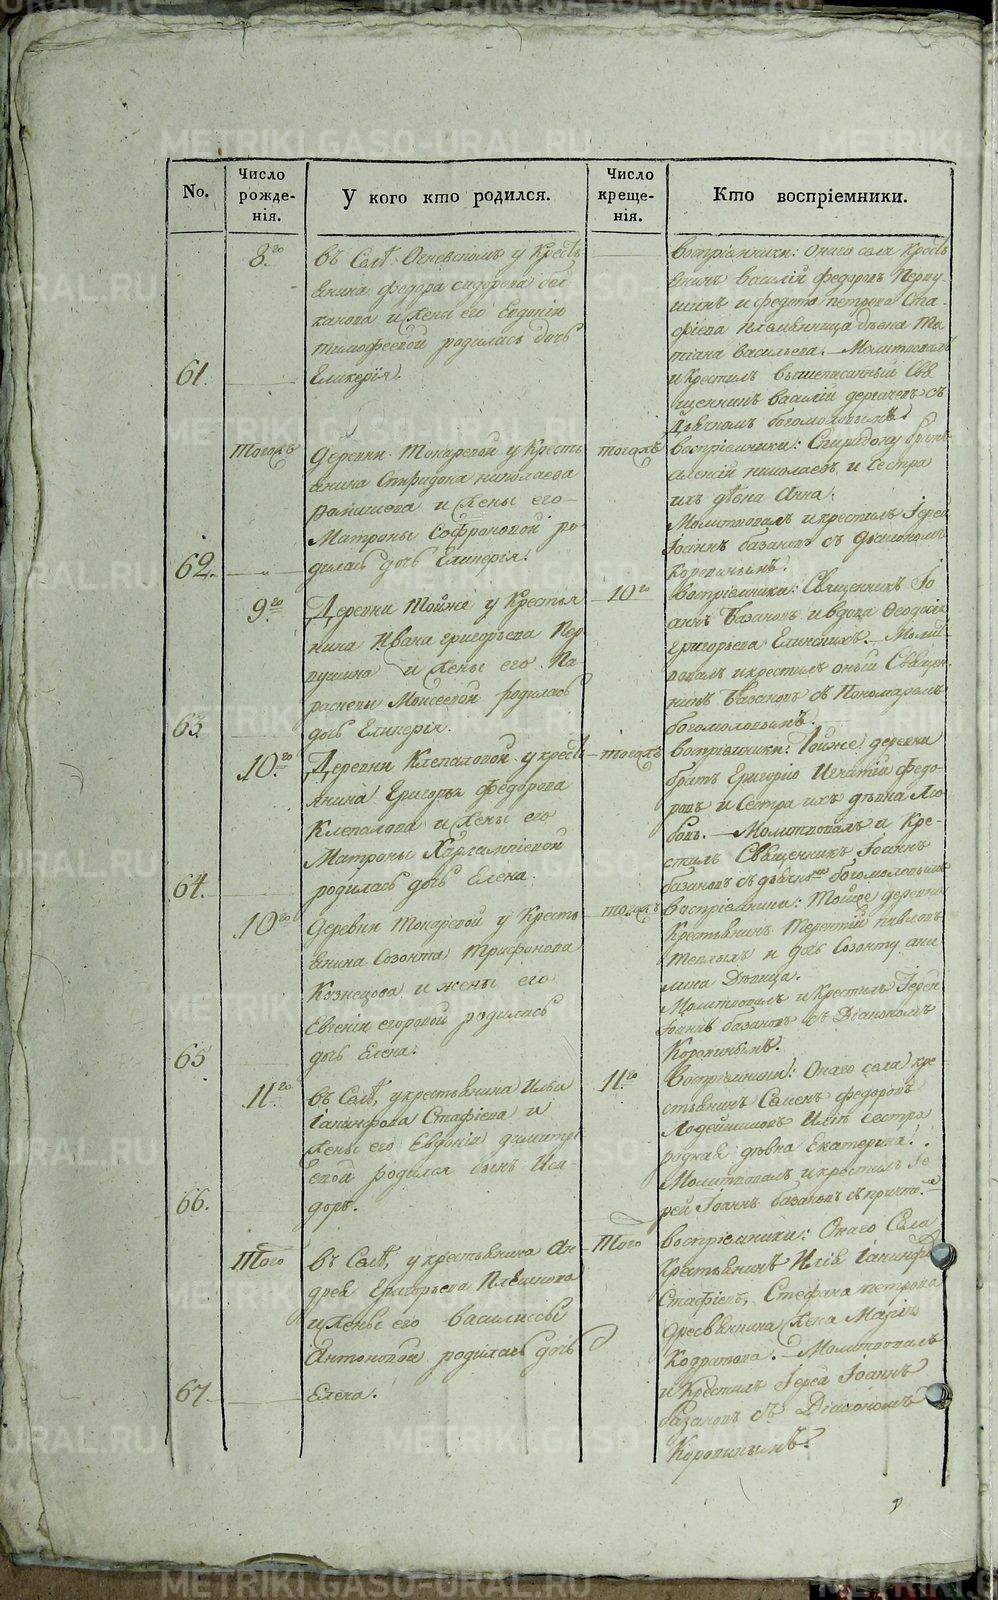 No.
Число рожде-нія.
У кого кто родился.
Число креще-нія.
Кто воспріемники.
8го
въ Селѣ Огневскомъ у Кресть
янина федора сидорова
и жена его Евдокіи
тимофеевой родилась дочь
61.
Гликерія.
Воспріемники: Онаго села Кресть
янинъ василій федоровъ Перву-
шинъ и федота петрова Ста-
фіева племянница дѣвка Та
тіана васильева. Молитвовалъ
и Крестилъ вышеписанный Свя
щенникъ василій съ
Дьячкомъ богомоловымъ.
Тогожъ
Деревни Токаревой у Кресть
янина Спиридона николаева
и жены его
Матроны Софроновой ро
62.
дилась дочь Гликерія.
тогожъ
Воспріемники: Спиридону братъ
алексій николаевъ, и сестра
ихъ дѣвка Анна.
Молитвовалъ и крестилъ Іерей
Іоаннъ базановъ съ Діакономъ
Коровинымъ.
9го
Деревни Тойже у Крестья
нина Ивана григорьева Пер
вушина и жены его Па
расковьи Моисеевой родилась
63.
дочь Гликерія.
10го
Воспріемники: Священникъ Іо
аннъ Базановъ и вдова Ѳеодосія
Григорьева Молит
вовалъ и крестилъ оный Священ-
никъ Базановъ съ Пономаремъ
богомоловымъ.
10го
Деревни Клепаловой у крестъ
янина Григорья Федорова
Клепалова и жены его
Матроны Харлампіевой
64.
родилась дочь Елена.
тогожъ
Воспріемники: Тойже деревни
братъ Григорію Игнатій Федо-
ровъ и сестра ихъ дѣвка Лю
бовь. Молитвовалъ и Кре-
стилъ Священникъ Іоаннъ
базановъ съ дьячкомъ богомоловымъ
10го
Деревни Токаревой у Кресть
янина Созонта Трифонова
Кознецова и жены его
Евгеніи егоровой родилась
65
дочь Елена.
тогожъ
Воспріемники: Тойже деревни
Крестьянинъ Терентій павловъ
Теплыхъ и дочь Созонту аки
лина Дѣвица.
Молитвовалъ и Крестилъ Іерей
Іоаннъ базановъ съ Діакономъ
Коровинымъ.
11го
въ Селѣ, у крестьянина Ильи
Іакинфова Стафіева и
жены его Евдокіи димитрі
евой родился сынъ Иси-
66.
доръ.
11го
Воспріемники: Онаго села кре
стьянинъ Семенъ федоровъ
Лодейщиковъ Ильѣ сестра
родная дѣвка Екатерина.
Молитвовалъ и крестилъ Іе
рей Іоаннъ базановъ съ причто.
Того
въ Селѣ, у крестьянина Ан
дрея Григорьева Плѣшкова
и жены его Василисы
Антоновой родилась дочь
67.
Елена.
Того
Воспріемники: Онаго Села
Крестьянинъ Илія Іакинфо
Стафіевъ, Стефана петрова
жена Марія
Кодратова. Молитвовалъ
и Крестилъ Іерей Іоаннъ
базановъ съ Діакономъ
Коровинымъ.
METRIKI.GASO-URAL.RU